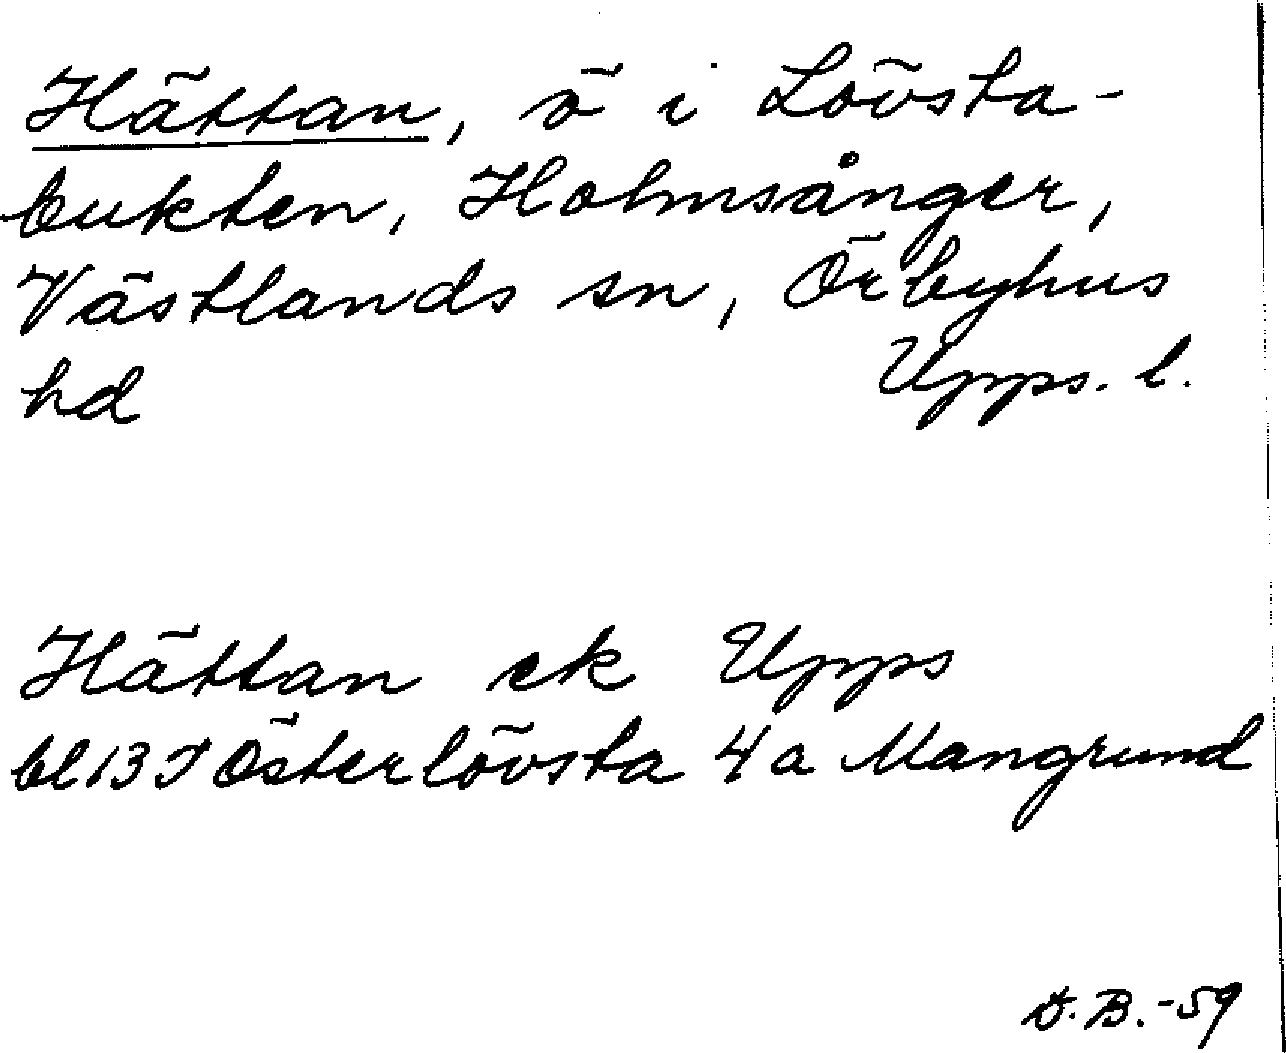 Hättan, ö i Lövsta-
bukten, Holmsånger,
Västlands sn, Örbyhus
hd Upps. l.
Hättan ek Upps
bl 13 I Österlövsta 4 a Mangrund
D.B.-59